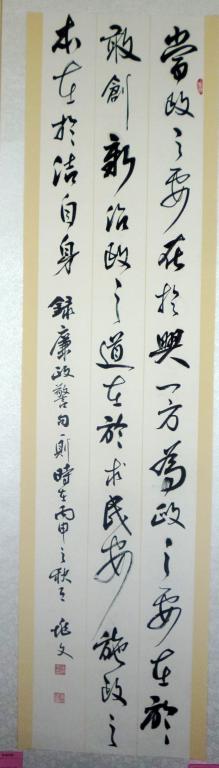 當政之要在於興一方為政之要在於
敢創新治政之道在於求民安施政之
本在於洁自身錄廉政警句一則時在丙申之秋月 雄文